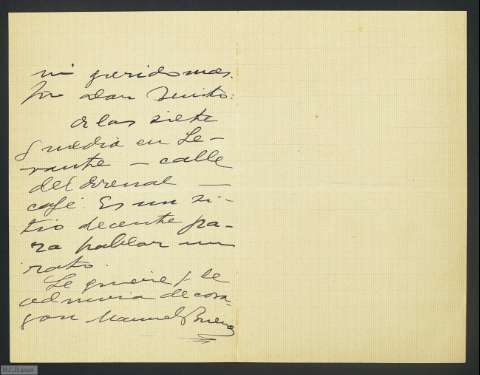 mi querido maes-
tro don Benito:
A las siete
y media en Le-
vante — calle
del Arenal —
café. Es un si-
tio decente pa-
ra hablar un
rato.
Le quiere y le
admira de cora-
zon Manuel Bueno